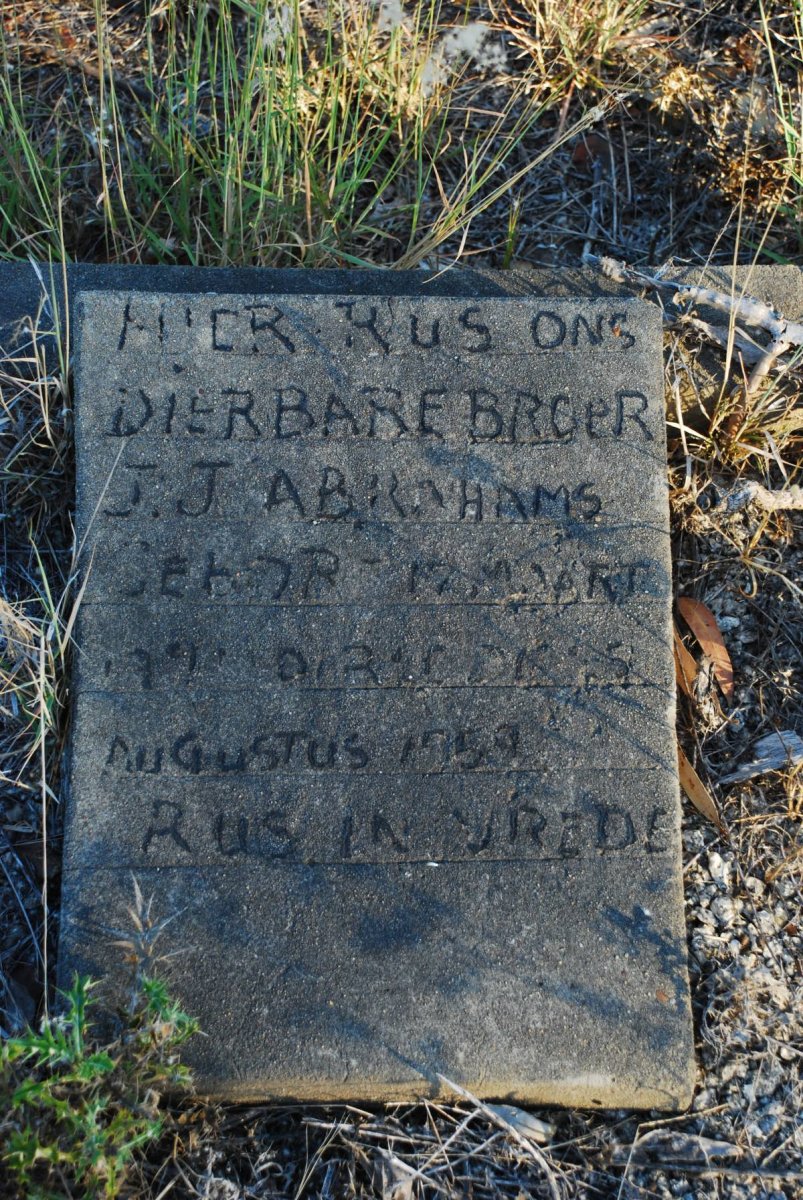 HIER RUS ONS
DIERBARE BROER
J.J ABRAHAMS
GEBOR 12 MAART
AUGUSTUS 1959
RUS IN VREDE